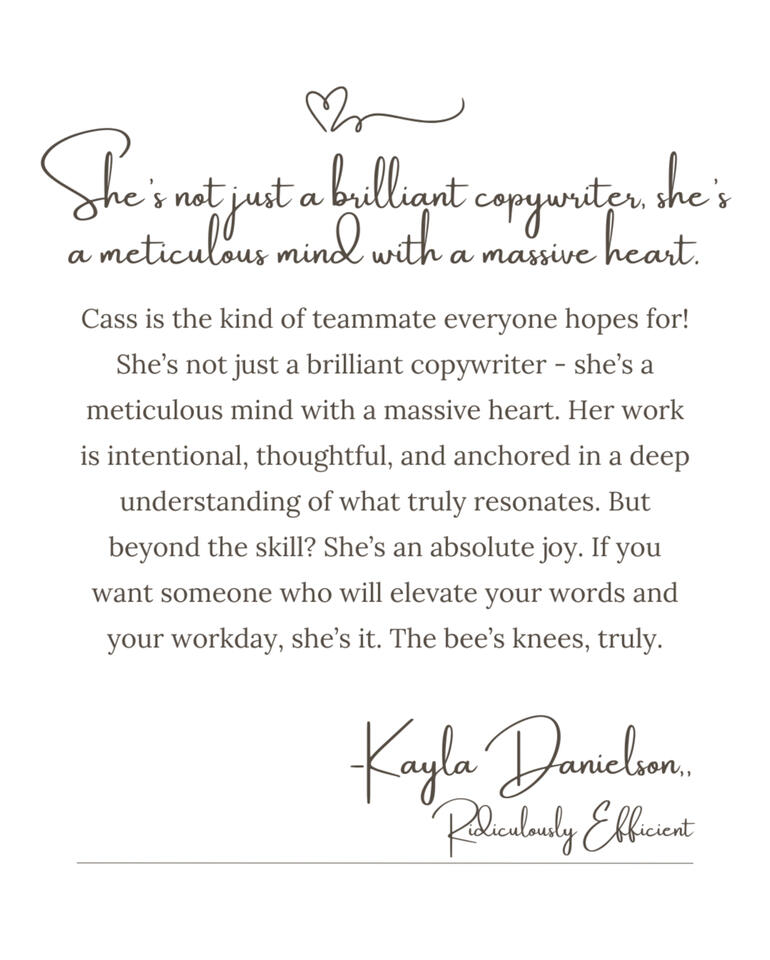 She's not just a brilliant copywriter, she's
a meticulous mind with a massive heart.
Cass is the kind of teammate everyone hopes for!
She’s not just a brilliant copywriter - she’s a
meticulous mind with a massive heart. Her work
is intentional, thoughtful, and anchored in a deep
understanding of what truly resonates. But
beyond the skill? She’s an absolute joy. If you
want someone who will elevate your words and
your workday, she’s it. The bee’s knees, truly.
-Kayla Danielson,,
Ridiculously Efficient